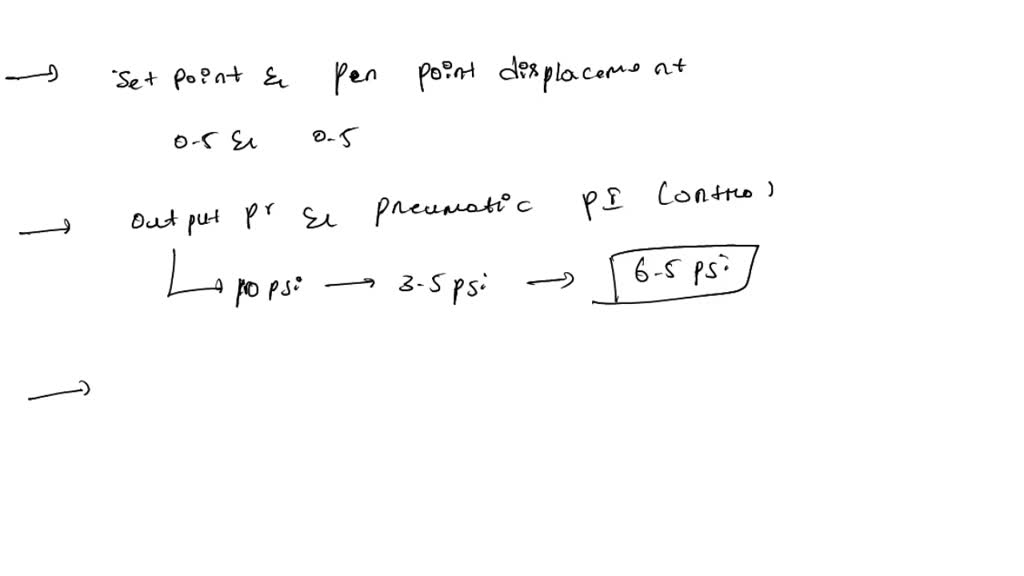 → Set point & pen point displacement
0.5 & 0.5
→ Output pr & pneumatic PI Control
↳ 10 psi → 3-5 psi → 6-5 psi
→